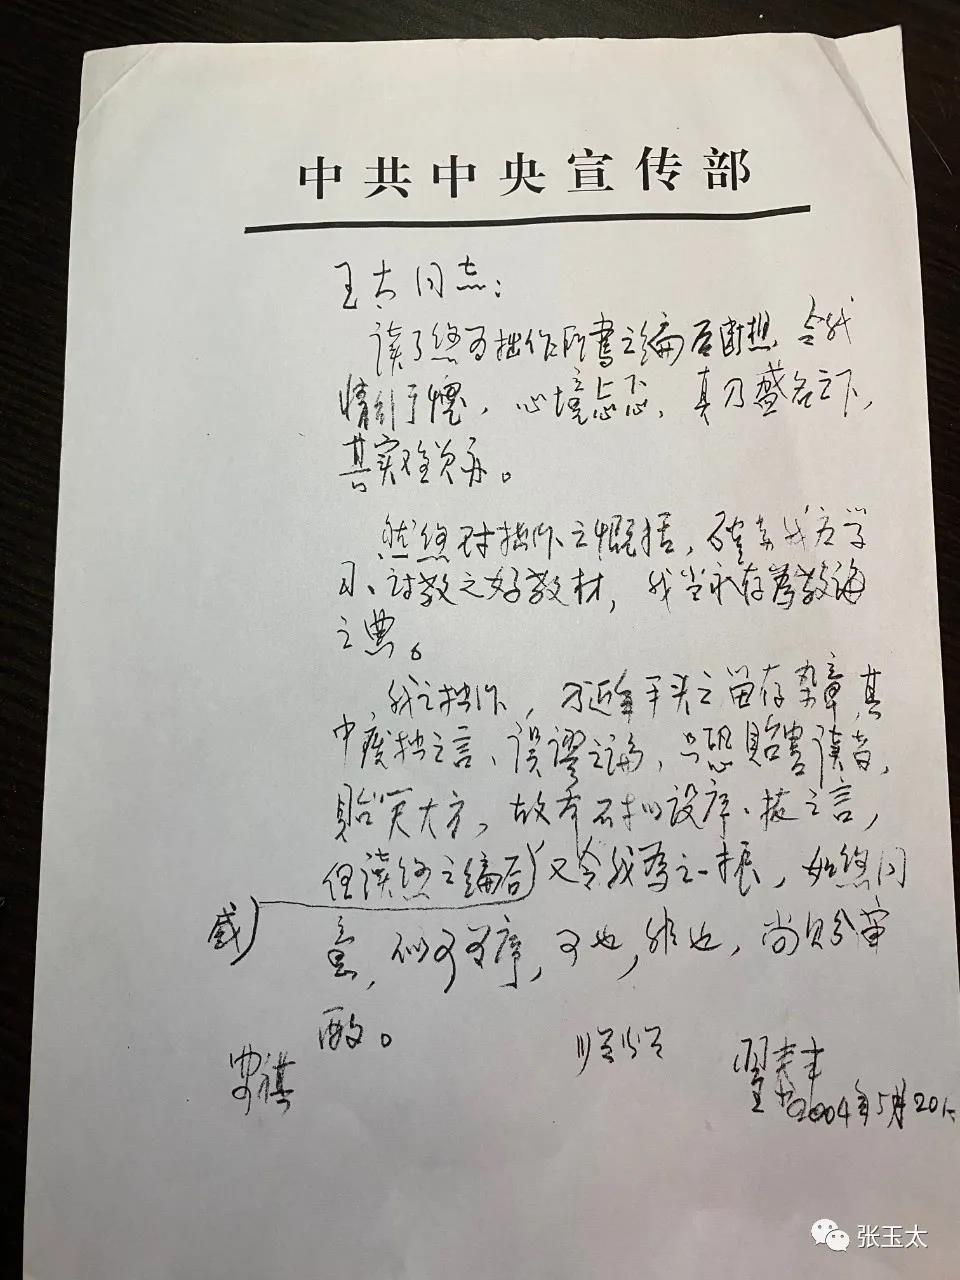 中共中央宣传部
玉太同志：
读了您为拙作所书之编后断想，令我
情动于怀，心境忐忑，真乃盛名之下，
其实难负矣。
然您对拙作之概括，确系我应学
习、讨教之好教材，我当永存为教诲
之典。
我之拙作，乃近年手头之留存， 其
中废拙之言、误谬之论，只恐贻害读者，
贻笑大方，故本不拟设序、拔之言，
但读您之编后感又令我为之一振，如您同
意，似可为序，可也，非也，尚贝
酌。
安祺
顺颂
翟
2004年5月20日
张玉太